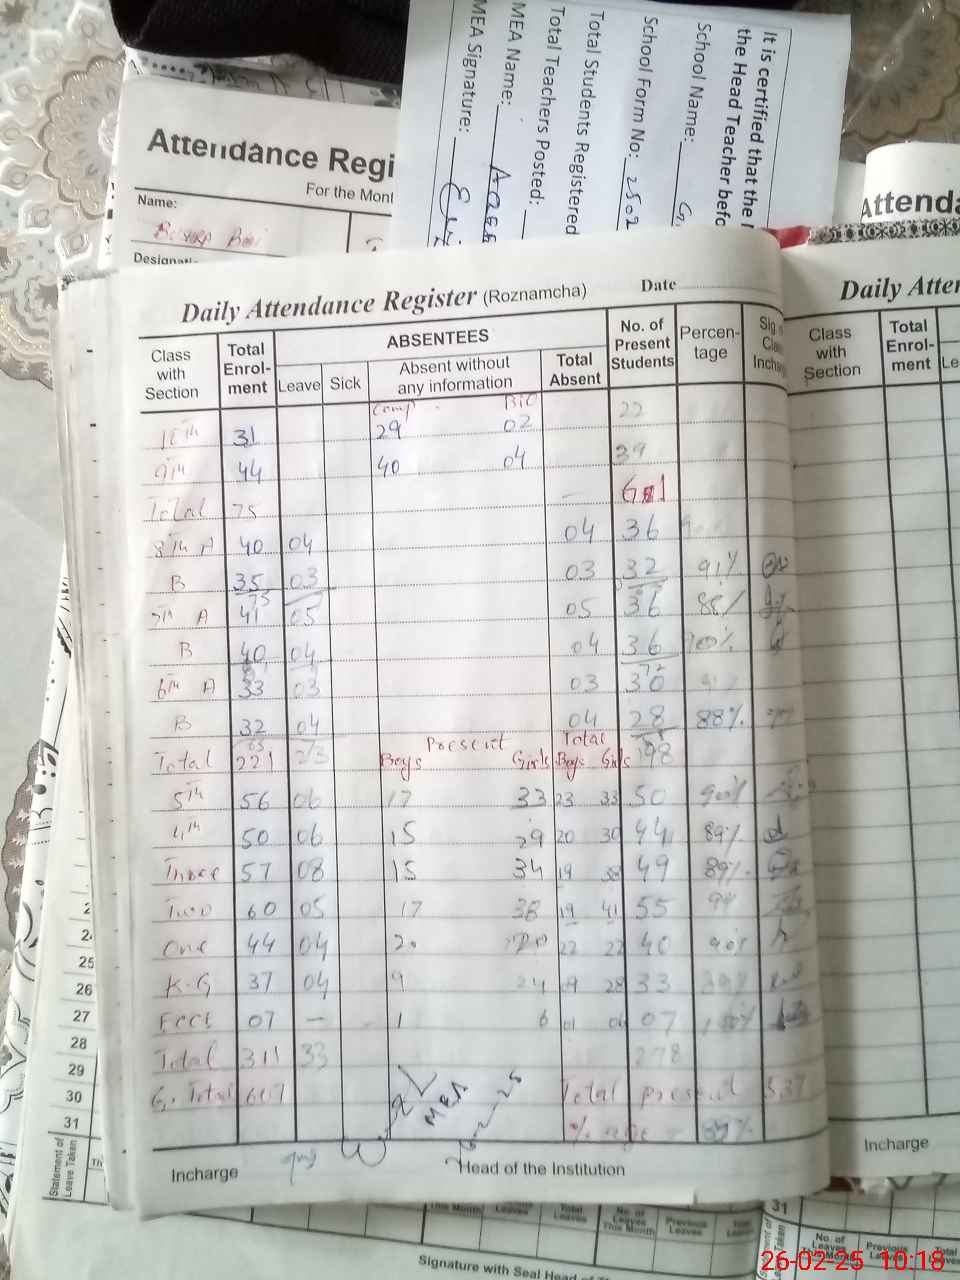 It is certified that the
the Head Teacher befo
School Name: G
School Form No: 2502
Total Students Registered
Total Teachers Posted:
MEA Name:
MEA Signature:
Attendance Regi
For the Mont
Name:
Designati
Attenda
Daily Attendance Register (Roznamcha) Date
Class with Section Total Enrol-ment ABSENTEES No. of Present Students Percen-tage Sig. Cla Incharg
Leave Sick Absent without any information Total Absent
Comp Bio
10th 31 29 02 22
9th 44 40 04 39
Total 75 61
8th A 40 04 04 36
B 35 03 03 32 91%
75
7th A 41 05 05 36 88%
B 40 04 04 36 90%
72
6th A 33 03 03 30
B 32 04 04 28 88%
65
Present Total
Total 221 23 Boys Girls Boys Girls 198
5th 56 06 17 33 23 33 50 90%
4th 50 06 15 29 20 30 44 89%
Three 57 08 15 34 19 38 49 89%
Two 60 05 17 38 19 41 55
One 44 04 20 20 22 22 40 90%
K.G 37 04 9 24 09 28 33
Ecce 07 — 1 6 01 06 07 100%
Total 311 33 278
G. Total 607 Total present 537
% age 89%
MEA
Incharge Head of the Institution
Daily Atten
Class with Section Total Enrol-ment Le
Incharge
2
24
25
26
27
28
29
30
31
Statement of Leave Taken
Th
This Month
Total Leaves
No. of Leaves This Month
Previous Leaves
Signature with Seal Head of T
31
No. of Leaves This Month
Previous Leaves
Total
26-02-25 10:18